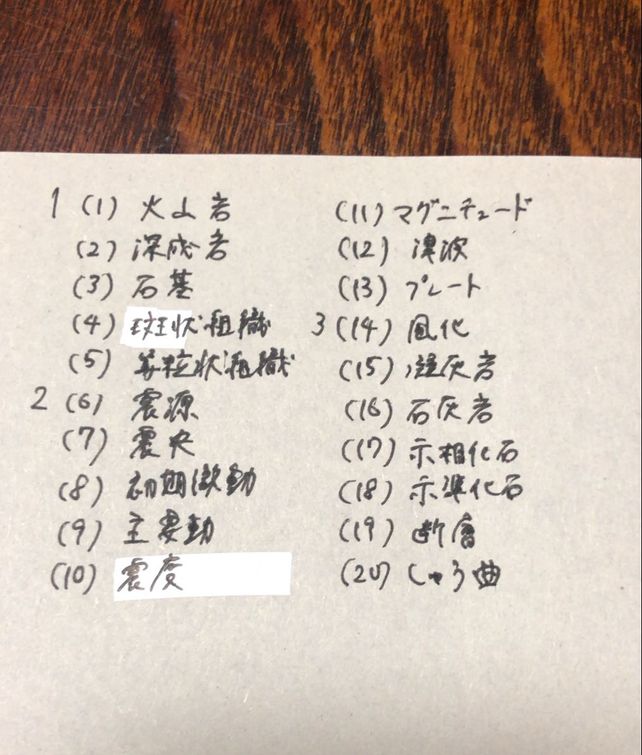 1 (1) 火山岩
(2) 深成岩
(3) 石基
(4) 斑状組織
(5) 等粒状組織
2 (6) 震源
(7) 震央
(8) 初期微動
(9) 主要動
(10) 震度
(11) マグニチュード
(12) 津波
(13) プレート
3 (14) 風化
(15) 凝灰岩
(16) 石灰岩
(17) 示相化石
(18) 示準化石
(19) 断層
(20) しゅう曲